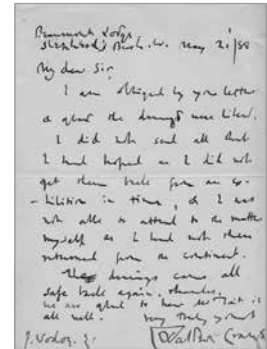 Beaumont Lodge
Shepherd's Bush. W. May 21/88
My dear Sir,
I am obliged by your letter
& glad the drawings were liked.
I did not send all that
I had hoped as I did not
get them back from an ex-
-hibition in time, & I was
not able to attend to the matter
myself as I had not then
returned from the continent.
The drawings came all
safe back again. thanks.
we are glad to hear Mr Tait is
all well. Very truly yours
Walter Crane